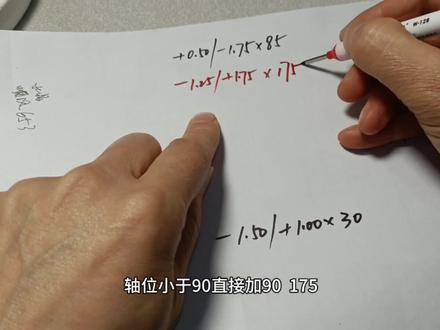 +0.50/-1.75×85
-1.25/+1.75×175
-1.50/+1.00×30
轴位小于90直接加90 175